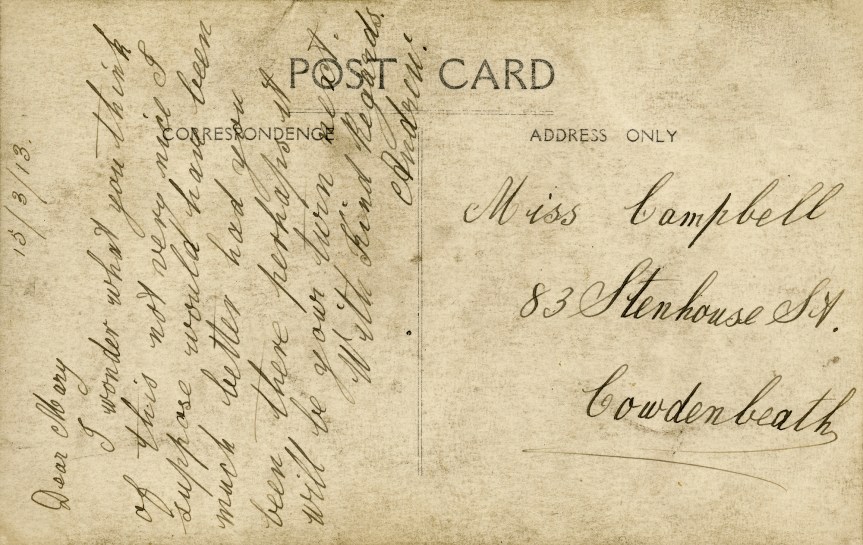 POST CARD
CORRESPONDENCE
ADDRESS ONLY
15/3/13.
Dear Mary
I wonder what you think
of this not very nice I
suppose would have been
much better had you
been there perhaps it
will be your turn next.
With Kind Regards.
Andrew.
Miss Campbell
83 Stenhouse St.
Cowdenbeath